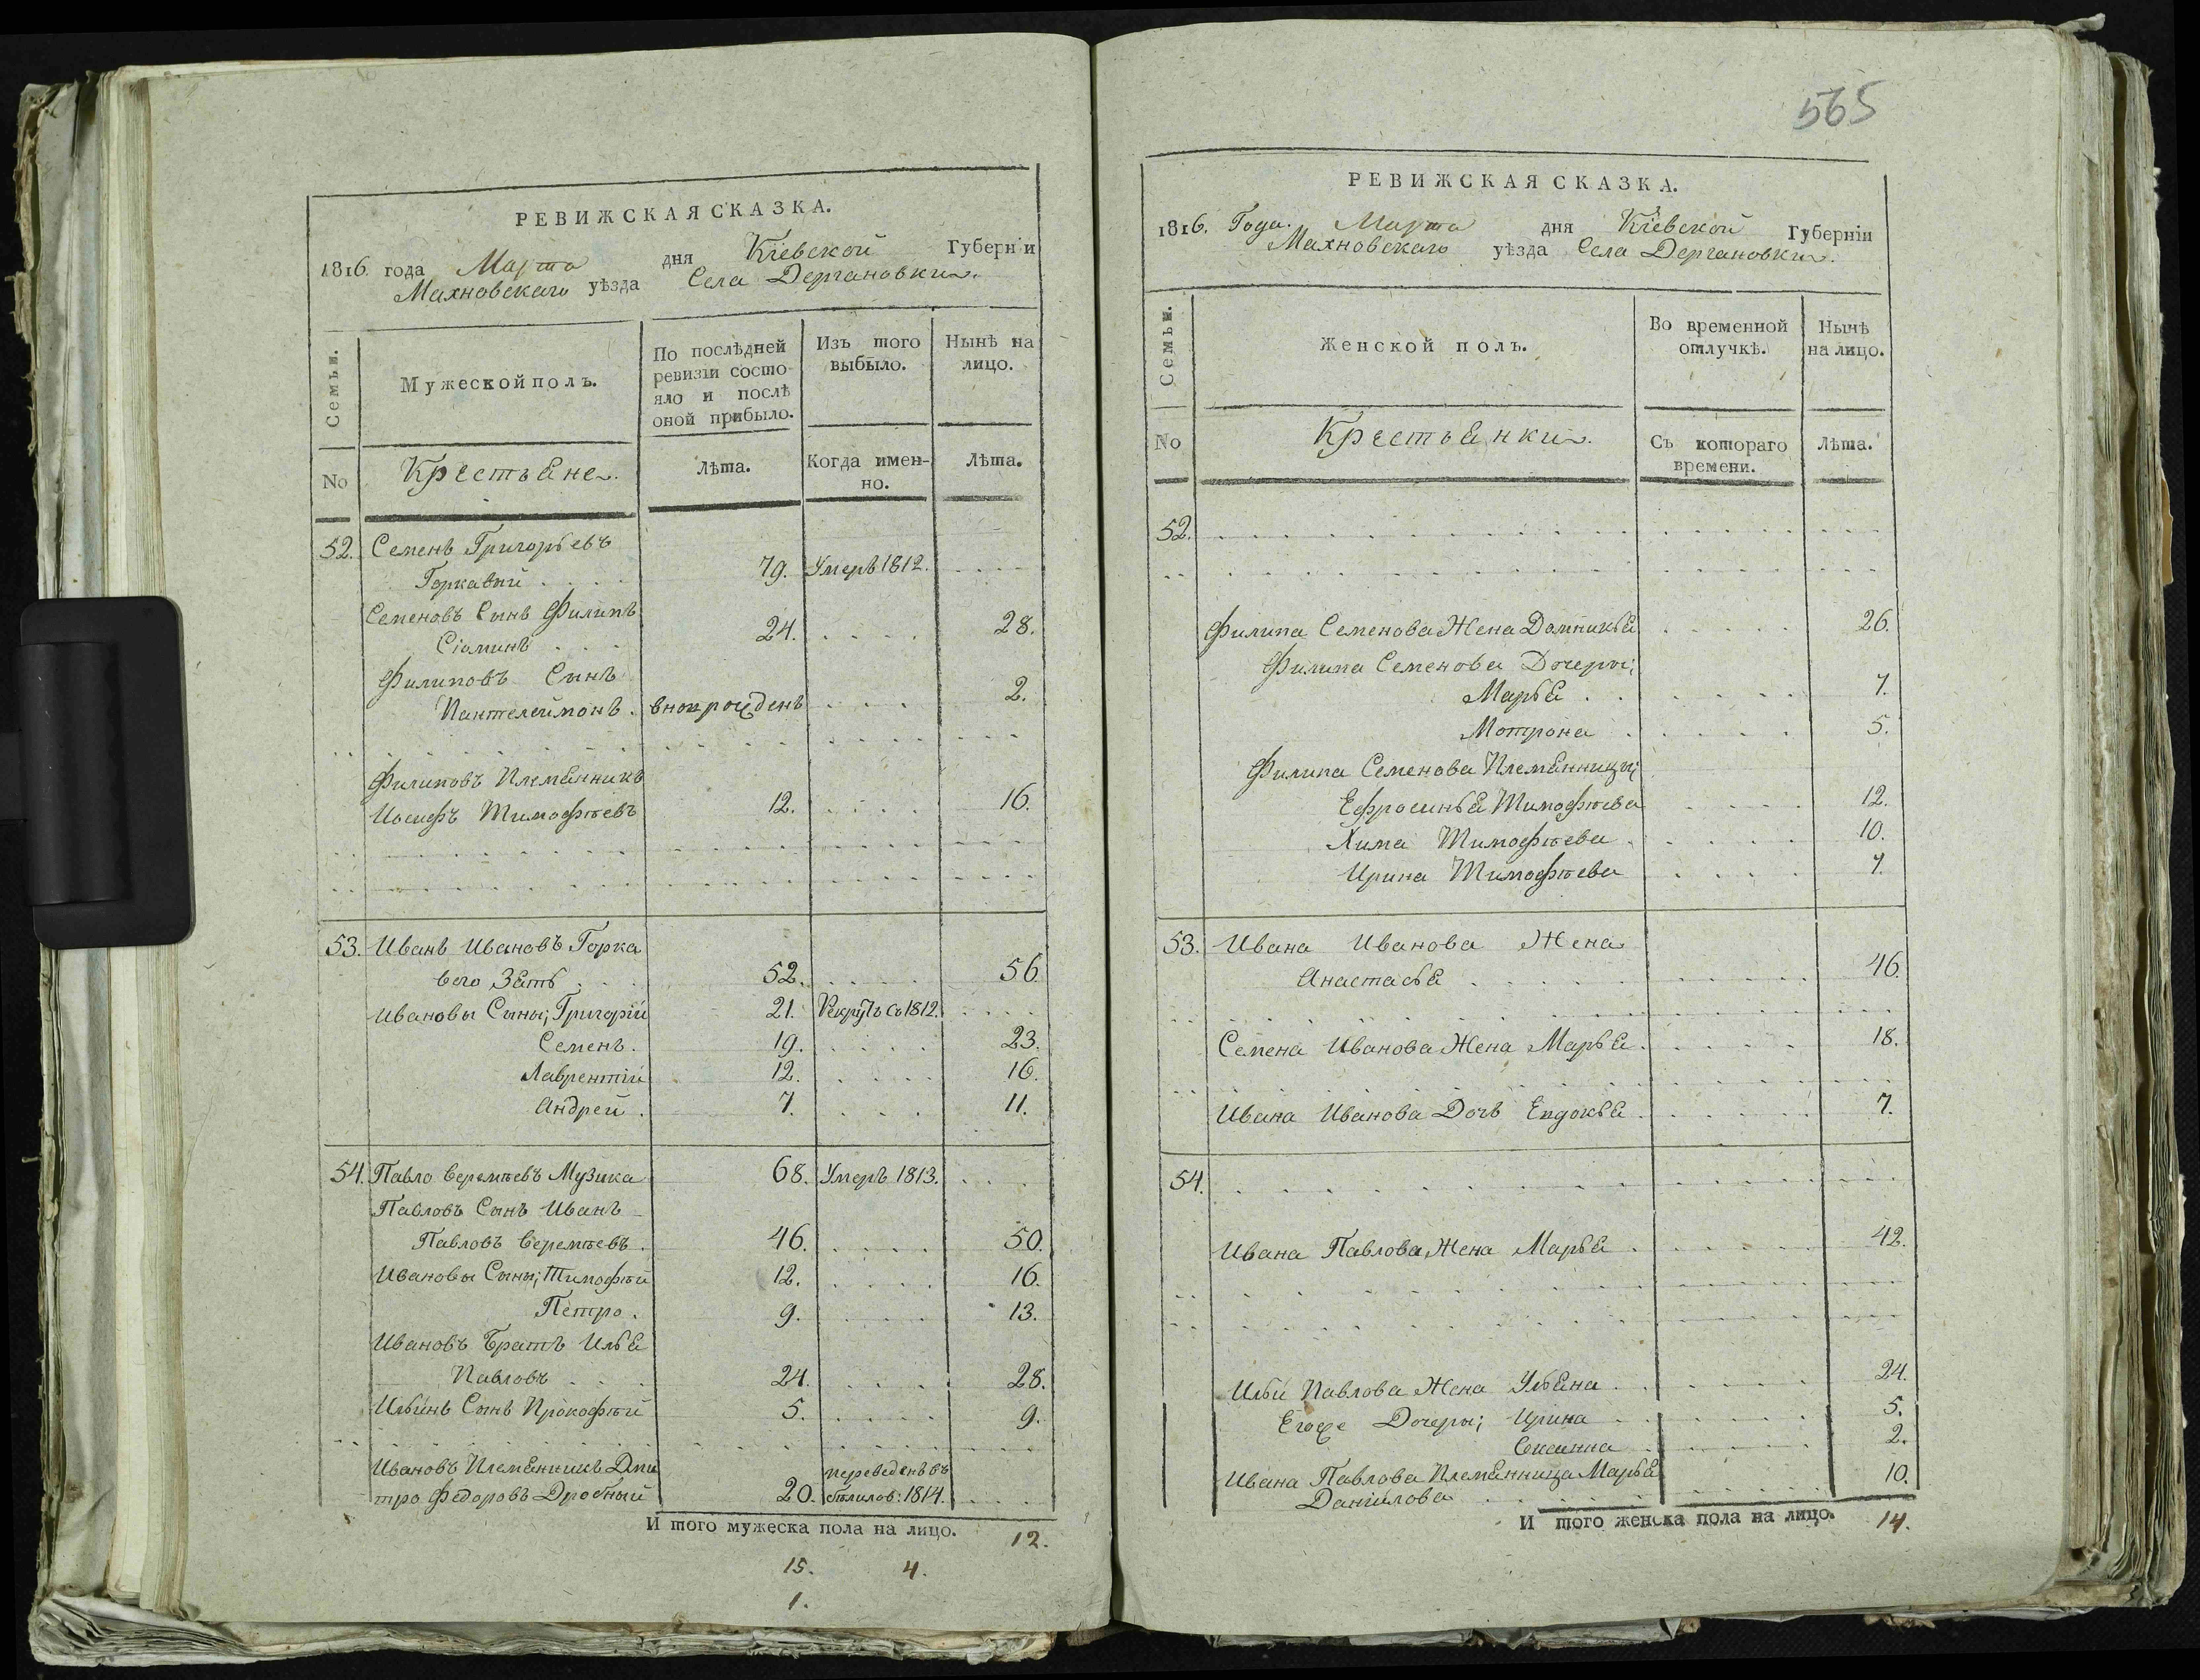 565
РЕВИЖСКАЯ СКАЗКА.
1816 года Марта дня Кіевской Губерніи
Махновскаго уѣзда Села Дергановки.
Семьи.
Мужеской полъ.
По послѣдней ревизіи состо-
яло и послѣ
оной прибыло.
Изъ того
выбыло.
Нынѣ на
лицо.
No
Крестьяне.
Лѣта.
Когда имен-
но.
Лѣта.
52. Семенъ Григорьевъ
Горкавый . . . . 79. Умеръ 1812. . . . .
Семеновъ Сынъ Филипъ
Сіоминъ . . . 24. . . . . 28.
Филиповъ Сынъ
Пантелеймонъ . вновь рожденъ . . . 2.
Филиповъ Племянникъ
Иосифъ Тимофѣевъ 12. . . . . 16.
53. Иванъ Ивановъ Горка
вого Зять . . . 52. . . . . 56.
Ивановы Сыны; Григорій 21. Рекрутъ съ 1812. . . . .
Семенъ. 19. . . . . 23.
Лаврентій 12. . . . . 16.
Андрей . 7. . . . 11.
54. Павло Веремѣевъ Музика 68. Умеръ 1813. . . .
Павловъ Сынъ Иванъ
Павловъ Веремѣевъ . 46. . . . . 50.
Ивановы Сыны; Тимофѣй 12. . . . . 16.
Петро . 9. . . . . 13.
Ивановъ Братъ Илья
Павловъ . . . 24. . . . . 28.
Ильинъ Сынъ Прокофѣй 5. . . . . 9.
Ивановъ Племянникъ Дми
тро Федоровъ Дробный 20. переведенъ въ
1814. . . . .
И того мужеска пола на лицо. 12.
15. 4.
1.
РЕВИЖСКАЯ СКАЗКА.
1816. Года. Марта дня Кіевской Губерніи
Махновскаго уѣзда Села Дергановки.
Семьи.
Женской полъ.
Во временной
отлучкѣ.
Нынѣ
на лицо.
No
Крестьянки.
Съ котораго
времени.
Лѣта.
52.
Филипа Семенова Жена Домникья . . . . . 26.
Филипа Семенова Дочеры;
Марья . . . . . . 7.
Мотрона . . . . . 5.
Филипа Семенова Племянницы;
Ефросинья Тимофѣева . . . . 12.
Хима Тимофѣева . . . . . 10.
Ирина Тимофѣева . . . . 7.
53. Ивана Иванова Жена
Анастасья . . . . . . . . . 46.
Семена Иванова Жена Марья . . . . . 18.
Ивана Иванова Дочь Евдокья . . . . . 7.
54.
Ивана Павлова Жена Марья . . . . . 42.
Ильи Павлова Жена Ульяна . . . . . . 24.
Егоже Дочеры; Ирина . . . . . . 5.
. . . . . 2.
Ивана Павлова Племянница Марья
Данилова . . . . . . . . . 10.
И того женска пола на лицо. 14.